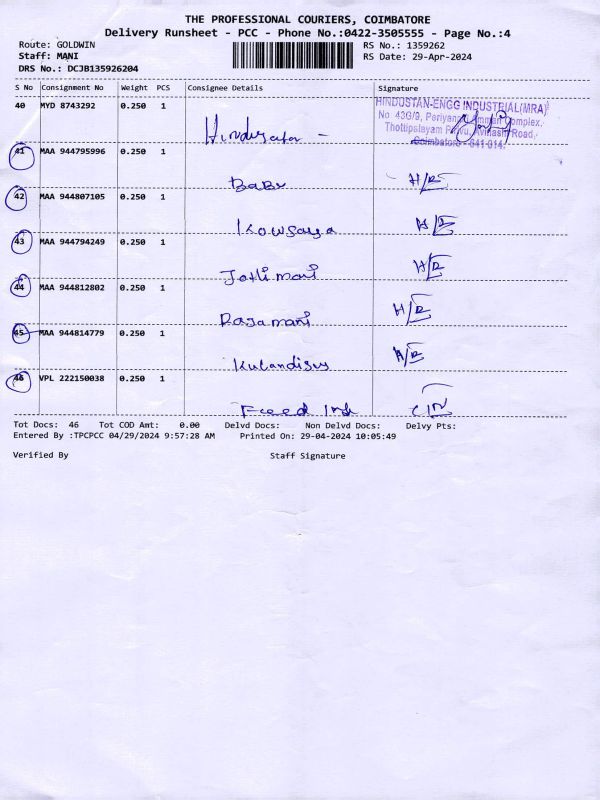 THE PROFESSIONAL COURIERS, COIMBATORE
Delivery Runsheet - PCC - Phone No.:0422-3505555 - Page No.:4
Route: GOLDWIN RS No.: 1359262
Staff: MANI RS Date: 29-Apr-2024
DRS No.: DCJB135926204
S No Consignment No Weight PCS Consignee Details Signature
40 MYD 8743292 0.250 1
HINDUSTAN ENGG INDUSTRIAL(MRA)
No 43G/9, Periyana Amman Complex,
Thottipalayam Pirivu, Avinashi Road,
Coimbatore - 641 014.
Hindustan -
41 MAA 944795996 0.250 1
Babu H/R
42 MAA 944807105 0.250 1
Kowsalya H/R
43 MAA 944794249 0.250 1
Jothi mani H/R
44 MAA 944812802 0.250 1
Rajamani H/R
45 MAA 944814779 0.250 1
H/R
46 VPL 222150038 0.250 1
Tot Docs: 46 Tot COD Amt: 0.00 Delvd Docs: Non Delvd Docs: Delvy Pts:
Entered By :TPCPCC 04/29/2024 9:57:28 AM Printed On: 29-04-2024 10:05:49
Verified By Staff Signature